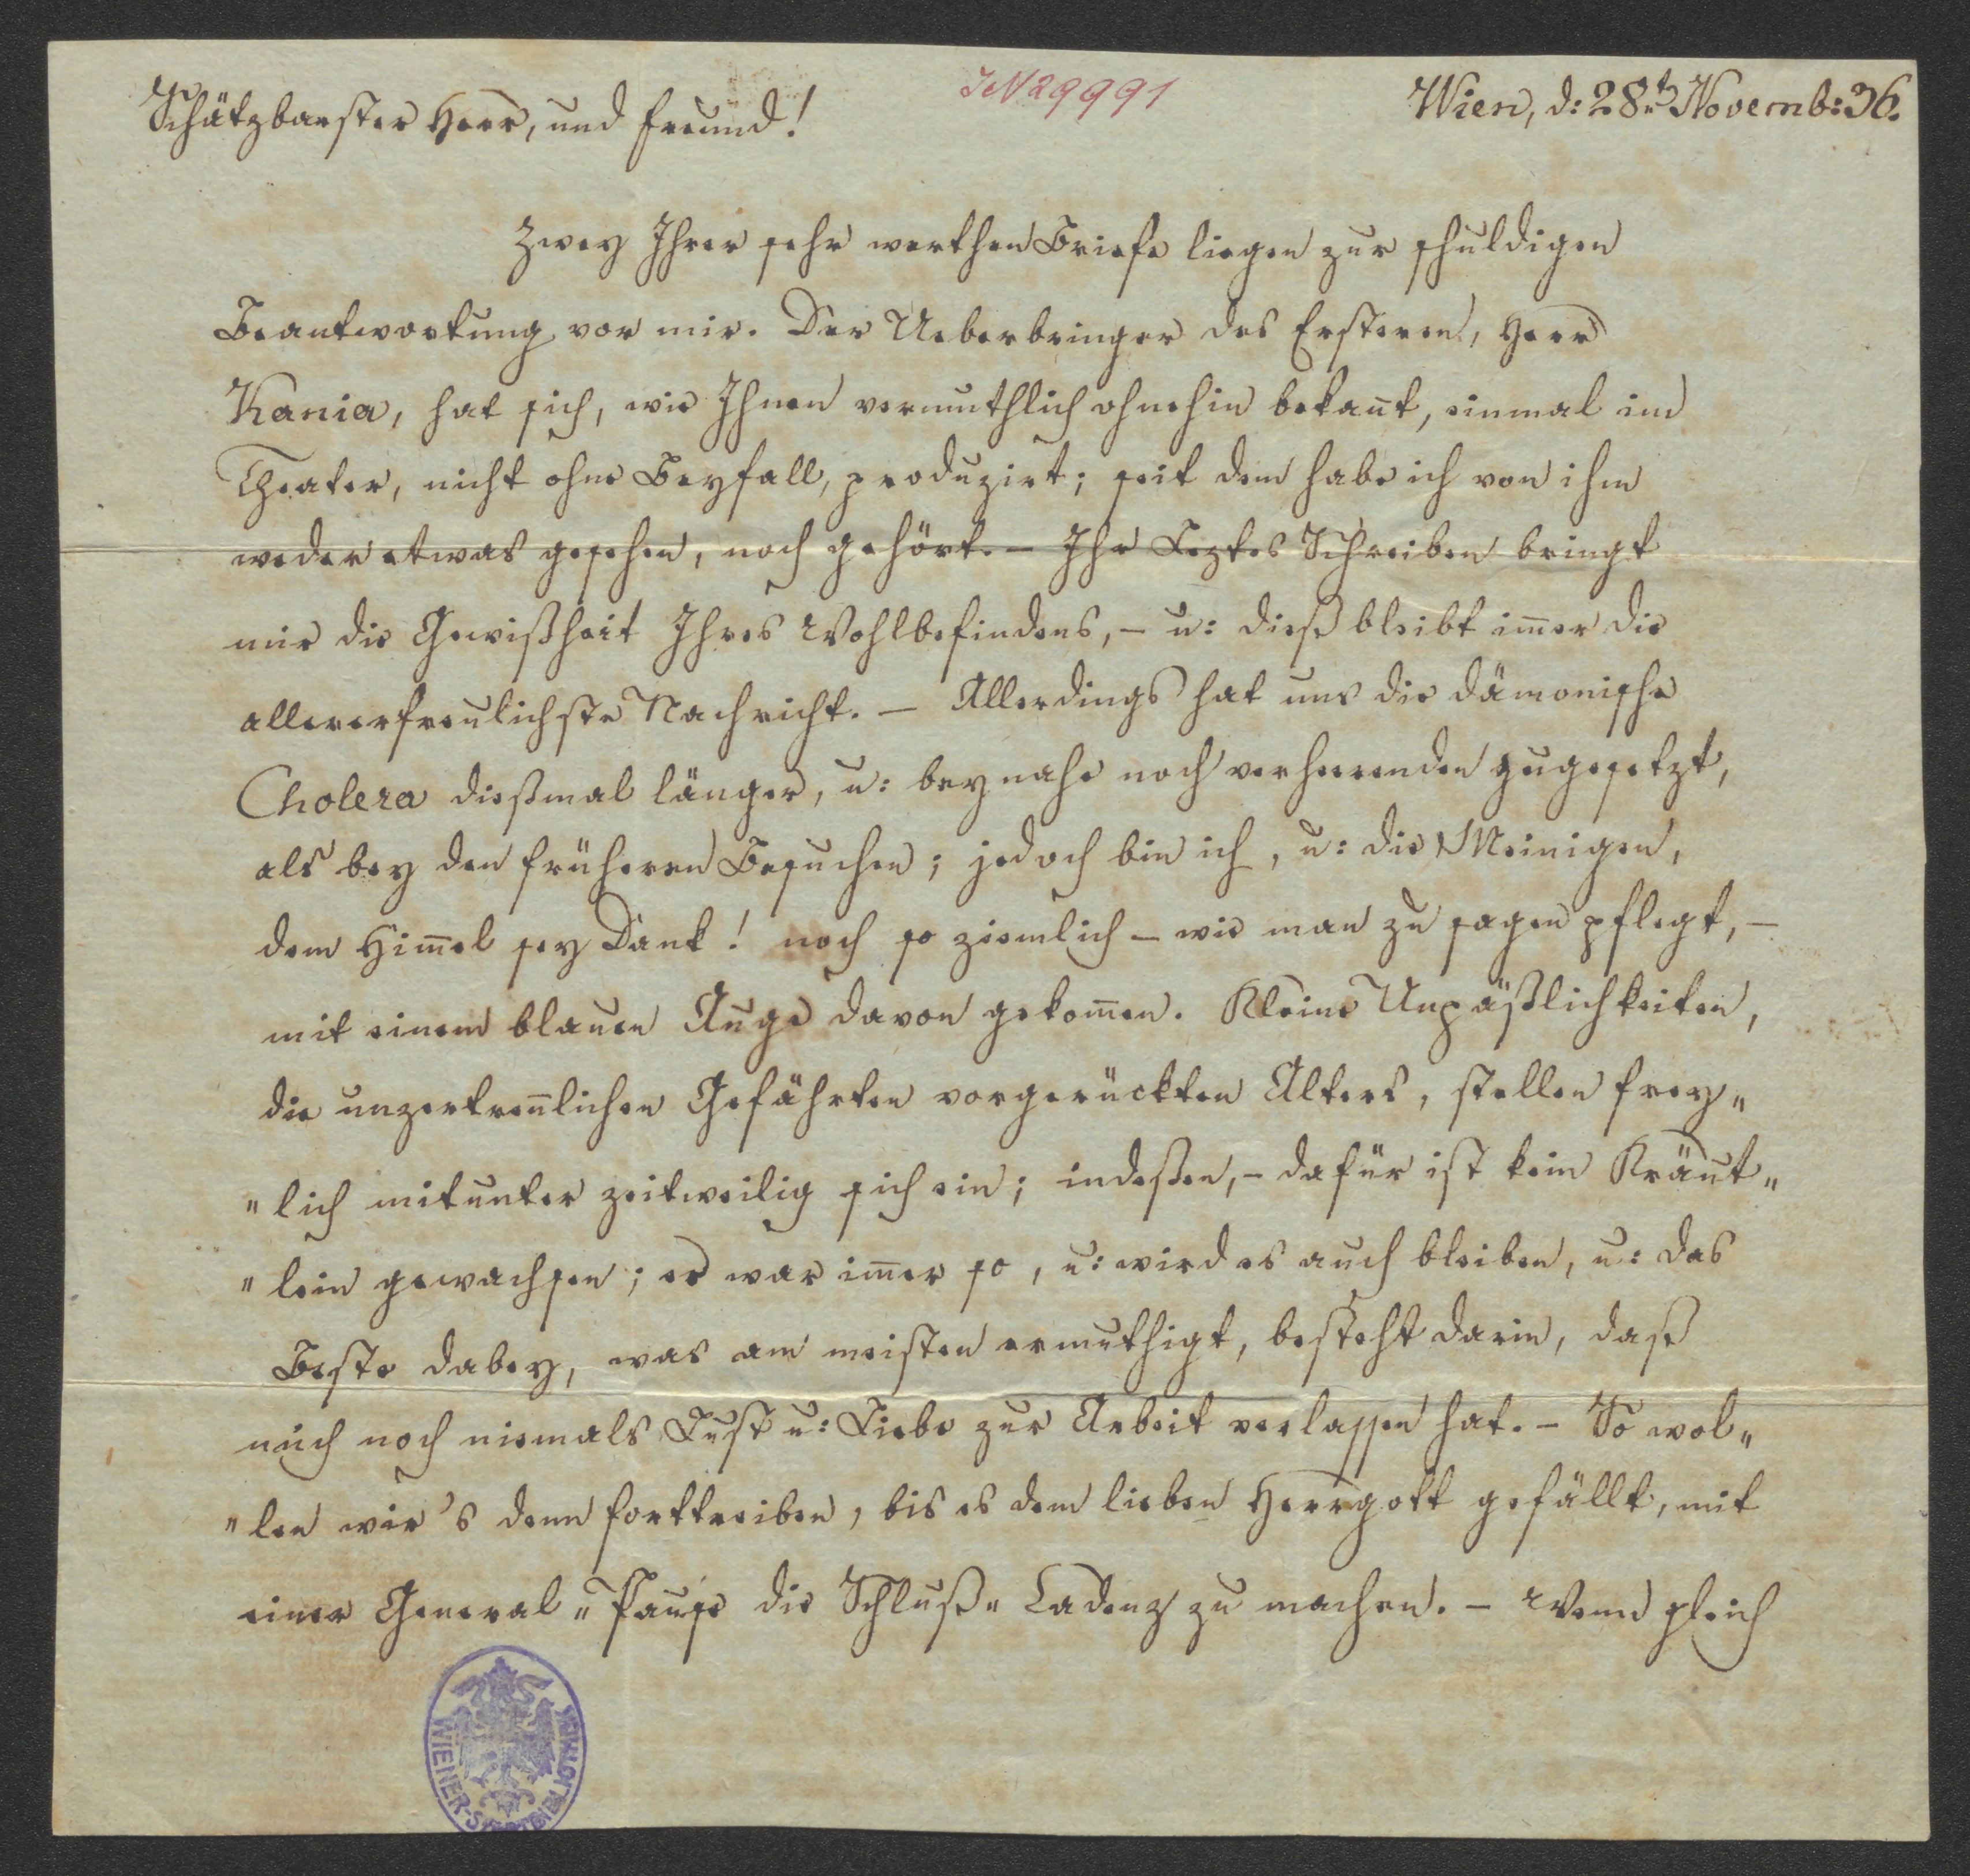 Schätzbarster Herr, und Freund!
JN 29991
Wien, d: 28tn Novemb: 36.
Zwey Ihrer sehr werthen Briefe liegen zur schuldigen
Beantwortung vor mir. Der Ueberbringer des Ersteren, Herr
Kania, hat sich, wie Ihnen vermuthlich ohnehin bekan̄t, einmal im
Theater, nicht ohne Beyfall, produzirt; seit dem habe ich von ihm
weder etwas gesehen, noch gehört. – Ihr Leztes Schreiben bringt
mir die Gewißheit Ihres Wohlbefindens, – u: dieß bleibt im̄er die
allererfreulichste Nachricht. – Allerdings hat uns die dämonische
Cholera dießmal länger, u: beynahe noch verheerender zugesetzt,
als bey den früheren Besuchen; jedoch bin ich, u: die Meinigen,
dem Him̄el sey Dank! noch so ziemlich – wie man zu sagen pflegt, –
mit einem blauen Auge davon gekom̄en. Kleine Unpäßlichkeiten,
die unzertren̄lichen Gefährten vorgerückten Alters, stellen frey„
„lich mitunter zeitweilig sich ein; indeßen, – dafür ist kein Kräut„
„lein gewachsen; es war im̄er so, u: wird es auch bleiben, u: das
Beste dabey, was am meisten ermuthigt, besteht darin, daß
mich noch niemals Lust u: Liebe zur Arbeit verlassen hat. – So wol„
„len wir's denn forttreiben, bis es dem lieben Herrgott gefällt, mit
einer General„Pause die Schluß„Cadenz zu machen. – Wenn gleich
WIENER-STADTBIBLIOTHEK